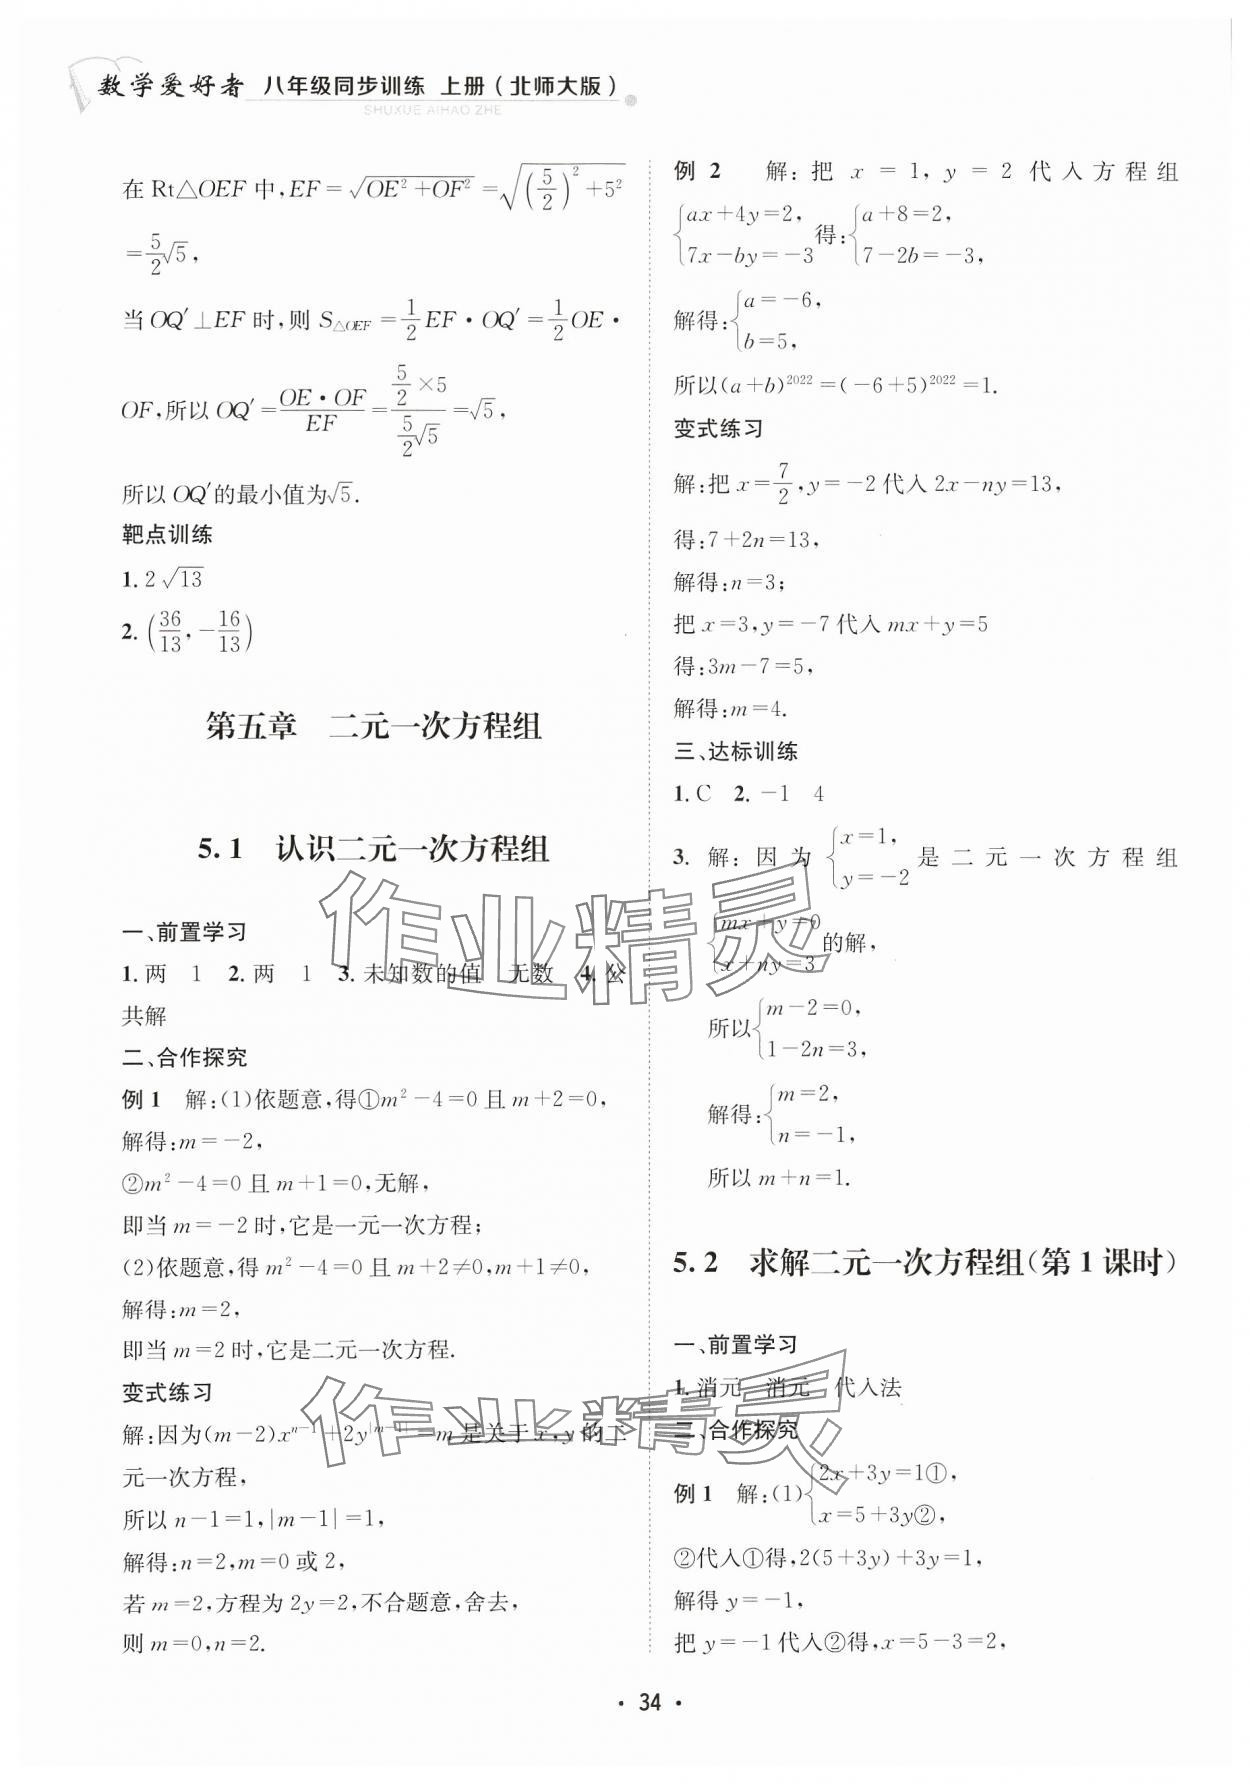 数学爱好者 八年级同步训练 上册（北师大版）
SHUXUE AIHAO ZHE
在 Rt△OEF 中,EF=√(OE²+OF²)=√((5/2)²+5²)
=5/2√5,
当 OQ′⊥EF 时,则 S△OEF=1/2EF·OQ′=1/2OE·
OF,所以 OQ′=(OE·OF)/EF=(5/2×5)/(5/2√5)=√5,
所以 OQ′的最小值为√5.
靶点训练
1. 2√13
2. (36/13,-16/13)
第五章 二元一次方程组
5.1 认识二元一次方程组
一、前置学习
1. 两 1 2. 两 1 3. 未知数的值 无数 4. 公
共解
二、合作探究
例 1 解:(1)依题意,得①m²-4=0 且 m+2=0,
解得:m=-2,
②m²-4=0 且 m+1=0,无解,
即当 m=-2 时,它是一元一次方程;
(2)依题意,得 m²-4=0 且 m+2≠0,m+1≠0,
解得:m=2,
即当 m=2 时,它是二元一次方程.
变式练习
解:因为(m-2)xⁿ⁻¹+2y^|m-1|=m 是关于 x,y 的二
元一次方程,
所以 n-1=1,|m-1|=1,
解得:n=2,m=0 或 2,
若 m=2,方程为 2y=2,不合题意,舍去,
则 m=0,n=2.
例 2 解:把 x=1,y=2 代入方程组
{ax+4y=2, 7x-by=-3 得:{a+8=2, 7-2b=-3,
解得:{a=-6, b=5,
所以(a+b)²⁰²²=(-6+5)²⁰²²=1.
变式练习
解:把 x=7/2,y=-2代入 2x-ny=13,
得:7+2n=13,
解得:n=3;
把 x=3,y=-7代入 mx+y=5
得:3m-7=5,
解得:m=4.
三、达标训练
1. C 2. -1 4
3. 解:因为{x=1, y=-2 是二元一次方程组
{mx+y=0 x+ny=3 的解,
所以{m-2=0, 1-2n=3,
解得:{m=2, n=-1,
所以 m+n=1.
5.2 求解二元一次方程组(第 1 课时)
一、前置学习
1. 消元 消元 代入法
二、合作探究
例 1 解:(1){2x+3y=1①, x=5+3y②,
②代入①得,2(5+3y)+3y=1,
解得 y=-1,
把 y=-1代入②得,x=5-3=2,
作业精灵
作业精灵
· 34 ·